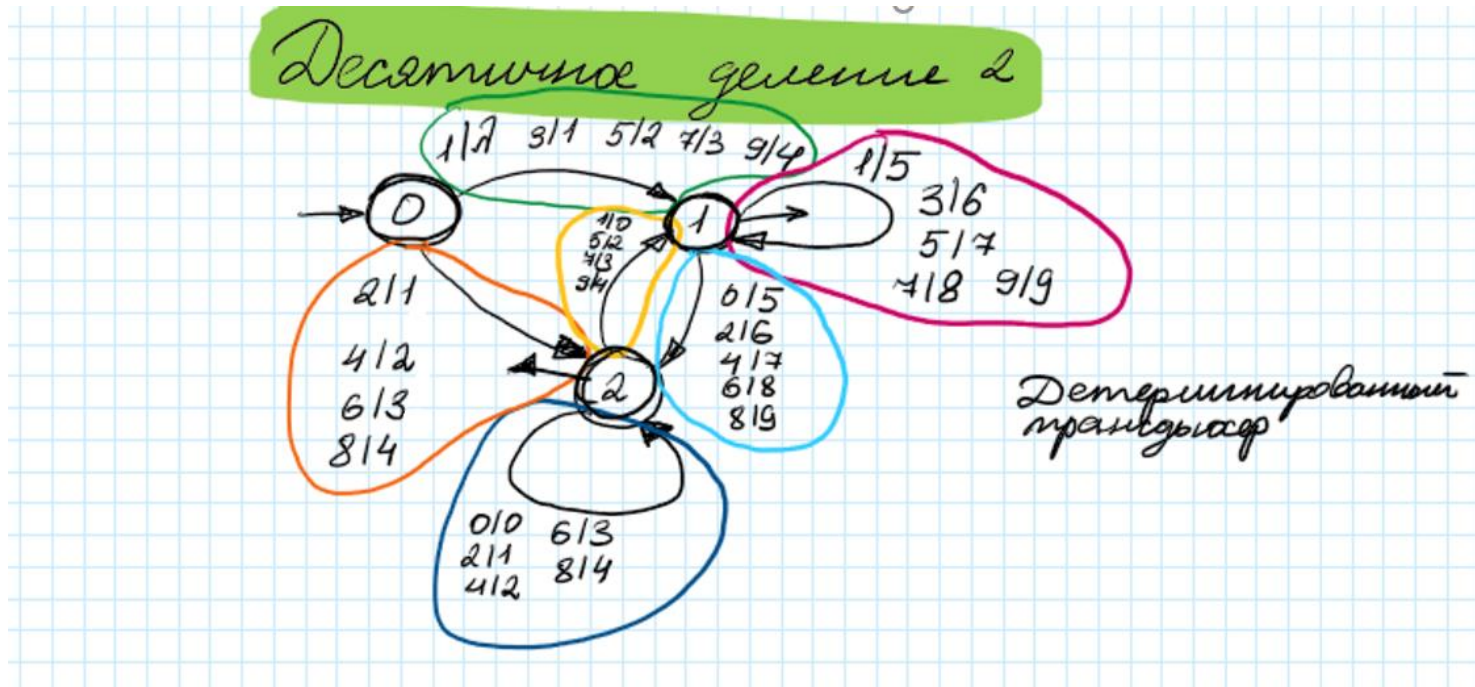 Десятичное деление 2
1/λ 3/1 5/2 7/3 9/4
0
1
2
1/5
3/6
5/7
7/8 9/9
1/0
5/2
7/3
9/4
2/1
4/2
6/3
8/4
0/5
2/6
4/7
6/8
8/9
0/0 6/3
2/1 8/4
4/2
Детерминированный
трансдьюсер